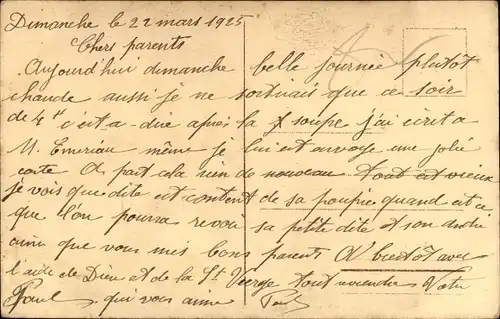 Dimanche le 22 mars 1925
Chers parents
Aujourd'hui dimanche belle journée plutôt
chaude aussi je ne sortirais que ce soir
de 4h c'est a dire après la soupe j'ai écrit a
M. Emeriau même je lui est envoye une jolie
carte A part cela rien de nouveau tout est vieux
je vois que dite est content de sa poupée quand est a
que l'on pourra revoir sa petite dite et son
ainsi que vous mes bons parents A bientôt avec
l'aide de Dieu et de la Ste Vierge tout Votre
Paul qui vous aime Paul